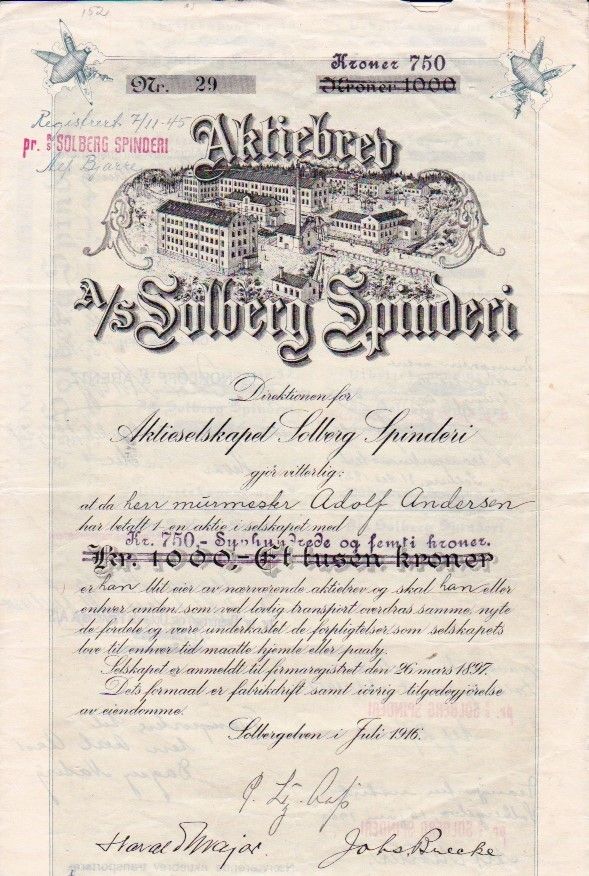 152
Kroner 750
Nr. 29
Kroner 1000
Registrert 7/11-45
pr. A/S SOLBERG SPINDERI
Leif Bjarre
Aktiebrev
A/S Solberg Spinderi
Direktionen for
Aktieselskapet Solberg Spinderi
gjør vitterlig:
at da herr murmester Adolf Andersen
har betalt 1-en aktie i selskapet med
Kr. 750.- Syvhundrede og femti kroner.
Kr. 1000,- Et tusen kroner
er han blit eier av nærværende aktiebrev og skal han eller
enhver anden som ved lovlig transport overdras samme, nyte
de fordele og være underkastet de forpligtelser, som selskapets
love til enhver tid maatte hjemle eller paaby.
Selskapet er anmeldt til firmaregistret den 26 mars 1897.
Dets formaal er fabrikdrift samt iøvrig tilgodegjørelse
av eiendomme.
Solbergelven i Juli 1916.
Harald Major
Johs Bræcke